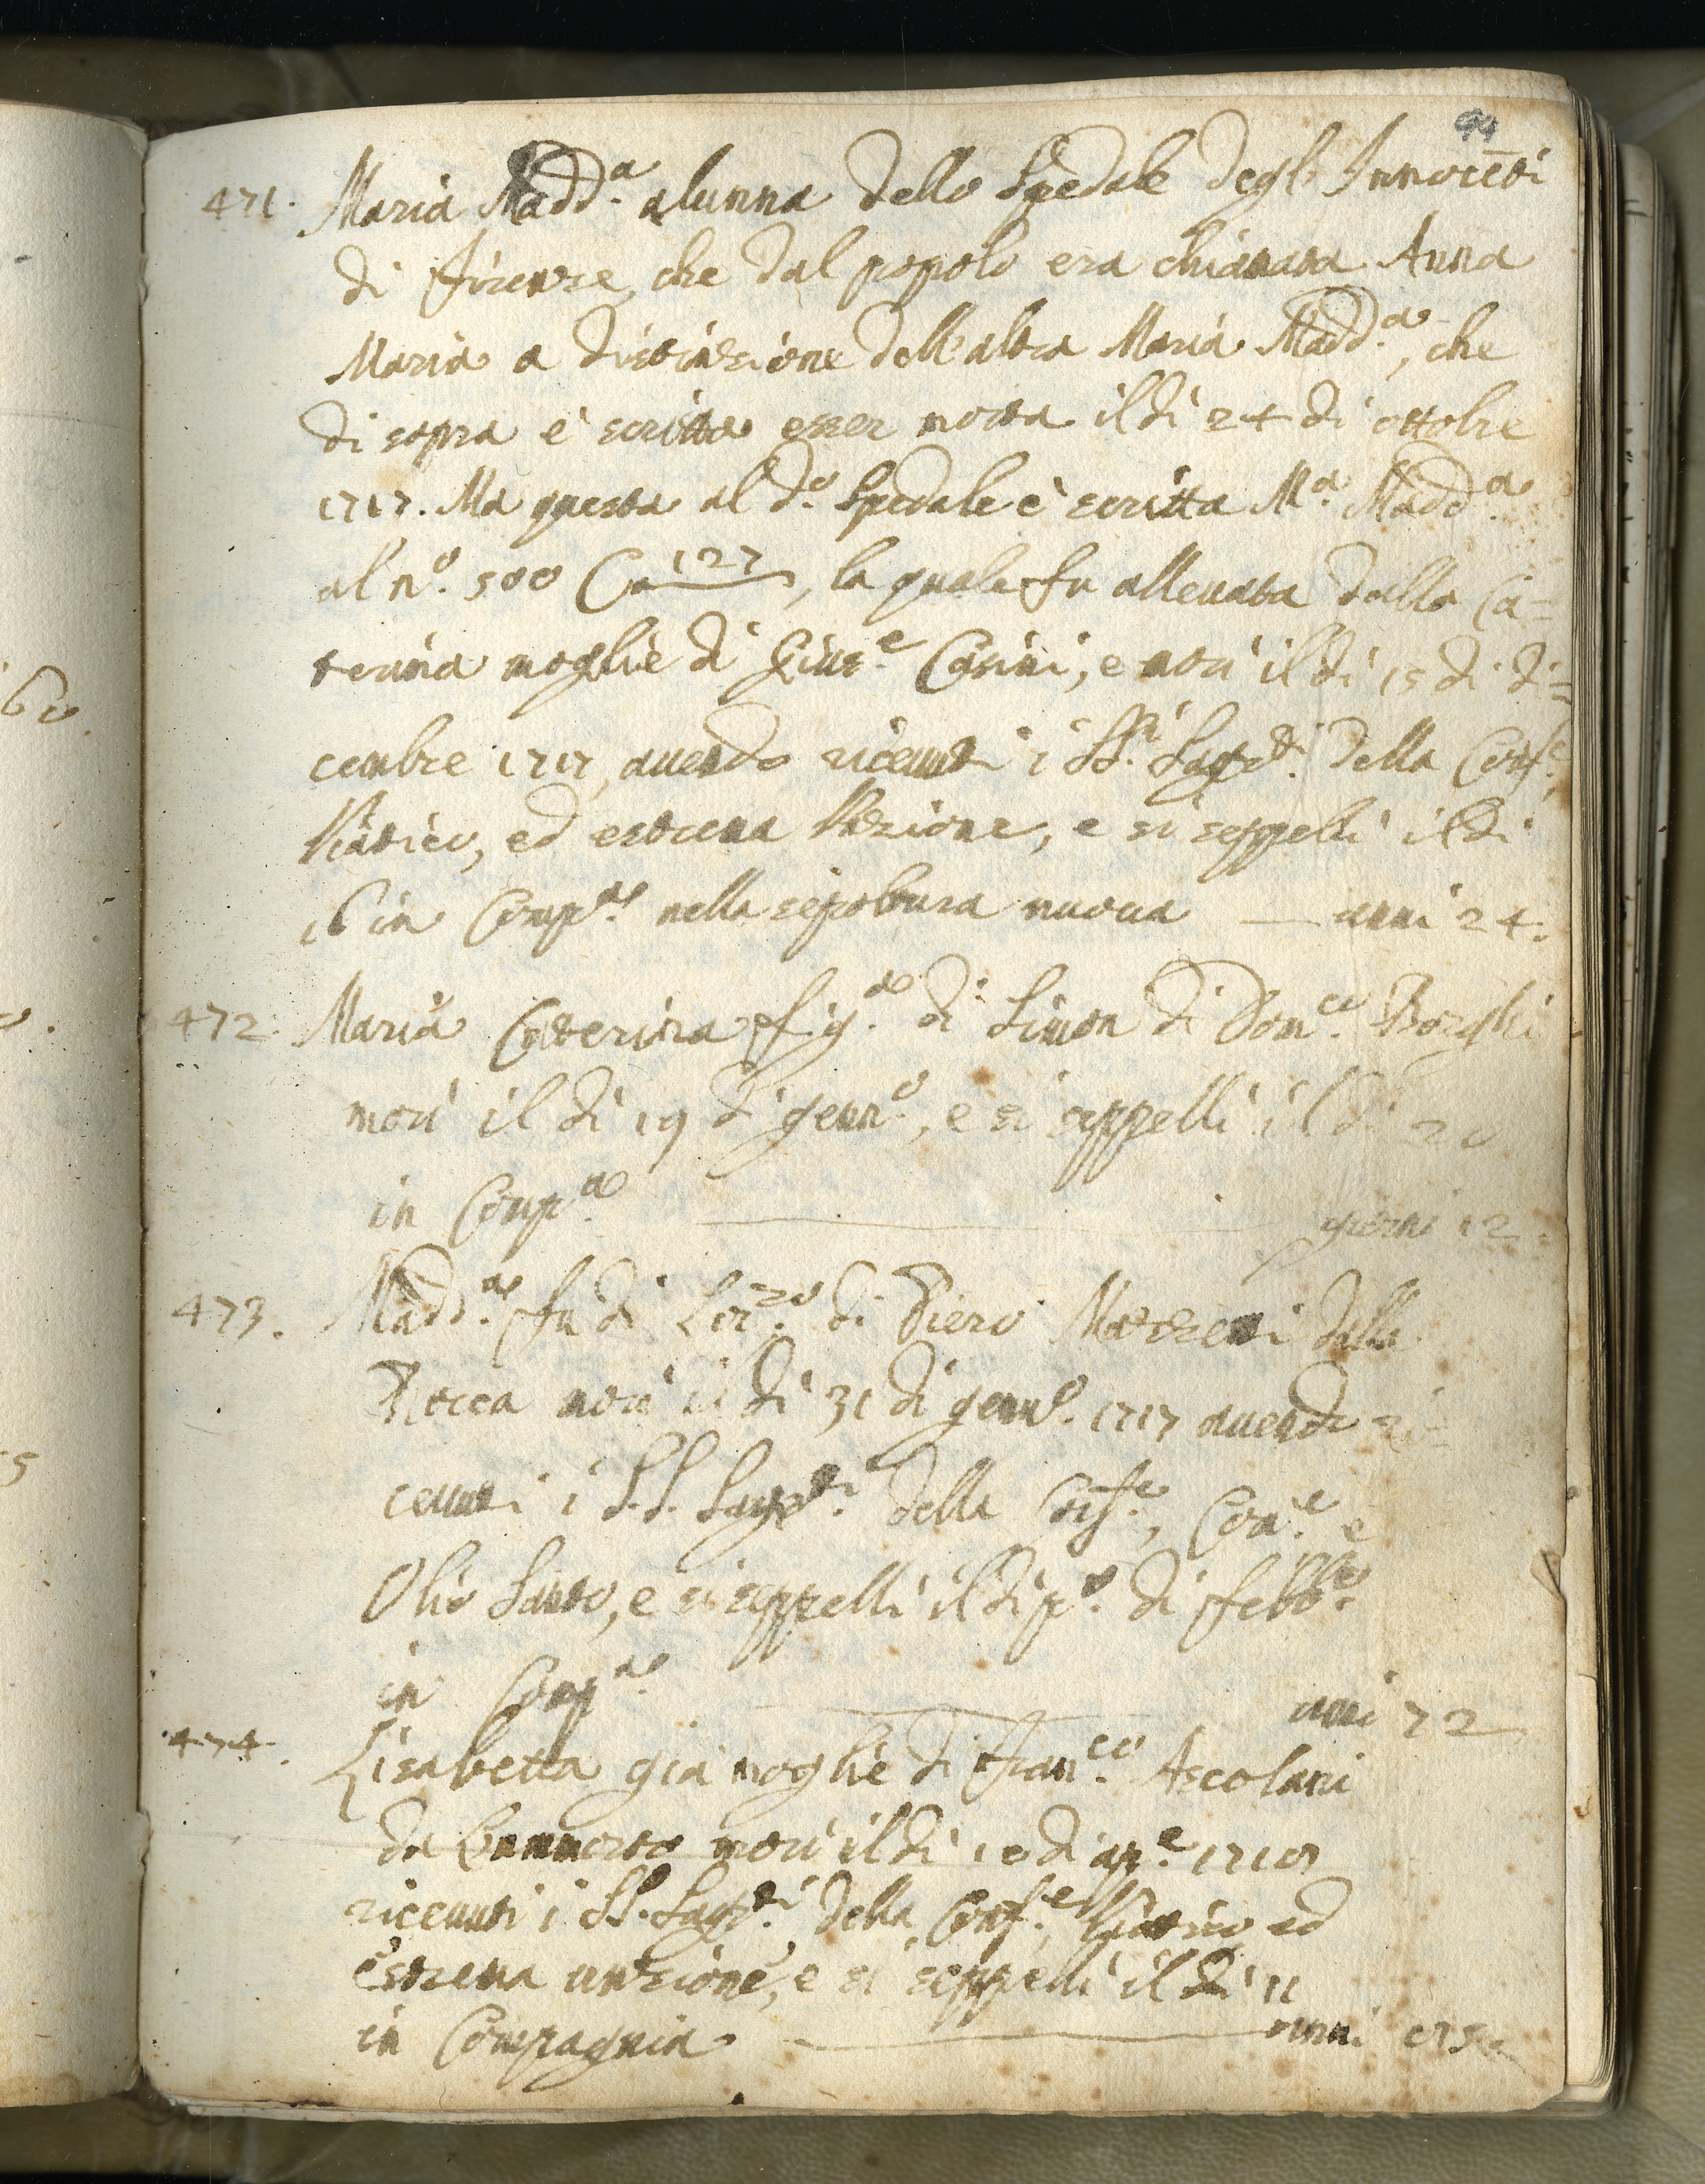 94
471. Maria Madd.ª alunna dello Spedale degl' Innocēti
di Firenze, che dal popolo era chiamata Anna
Maria a distinzione dell'altra Maria Madd.ª, che
di sopra è scritta esser morta il dì 24 di ottobre
1717. Ma questa al d.º Spedale è scritta M.ª Madd.ª
al n.º 500 Ca 127, la quale fu allevata dalla Ca=
terina moglie di Gius.e Casini, e morì il dì 15 di di=
cembre 1717, avendo ricevuti i SS.ri Sagr.ti della Conf.e
Viatico, ed estrema Unzione, e si seppellì il dì
16 in Comp.ª nella sepoltura nuova — anni 24.
472. Maria Caterina fig.ª di Simon di Dom.co Borghi
morì il dì 19 di genn.º, e si seppellì il dì 20
in Comp.ª — giorni 12.
473. Madd.ª fu di Lor.zo di Piero della
Rocca morì il dì 31 di genn.º 1717 avendo ri=
cevuti i S.S. Sagr.ti della Conf.e, Com.e e
Olio Santo, e si seppellì il dì p.º di Febb.
in Comp.ª anni 72
474. Lisabetta già moglie di Fran.co Ascolani
da morì il dì 10 di ap.e
ricevuti i SS. Sagr.ti della Conf.e, Viatico ed
estrema unzione, e si seppellì il dì 11
in Compagnia — anni